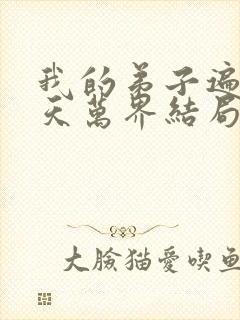 我的弟子遍
天萬界結局
大臉猫愛喫鱼